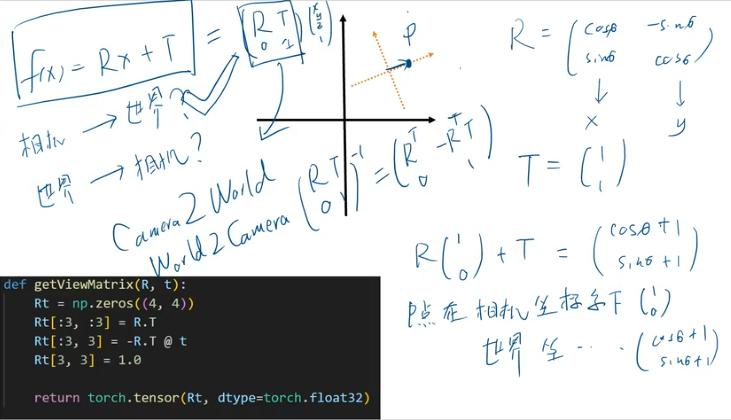 f(x) = Rx + T = (R T
0 1) (x
y
z
1)
相机 → 世界?
世界 → 相机?
Camera2World
World2Camera (R T
0 1)⁻¹ = (Rᵀ -RᵀT
0 1)
P
R = (cosθ -sinθ
sinθ cosθ)
↓ ↓
x y
T = (1
1)
R(1
0) + T = (cosθ+1
sinθ+1)
P点在相机坐标系下 (1
0)
世界坐…… (cosθ+1
sinθ+1)
def getViewMatrix(R, t):
Rt = np.zeros((4, 4))
Rt[:3, :3] = R.T
Rt[:3, 3] = -R.T @ t
Rt[3, 3] = 1.0
return torch.tensor(Rt, dtype=torch.float32)